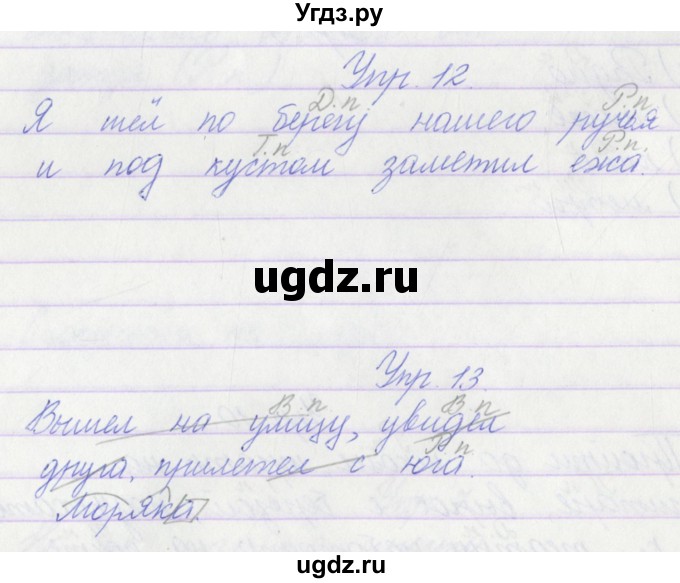 Угдз.ру
Упр. 12.
Д.п Р.п
Я шёл по берегу нашего ручья
Т.п Р.п.
и под кустом заметил ежа.
ugdz.ru
Упр. 13.
В.п В.п
Вышел на улицу, увидел
Р.п
друга, прилетел с юга.
Моряки.
ugdz.ru